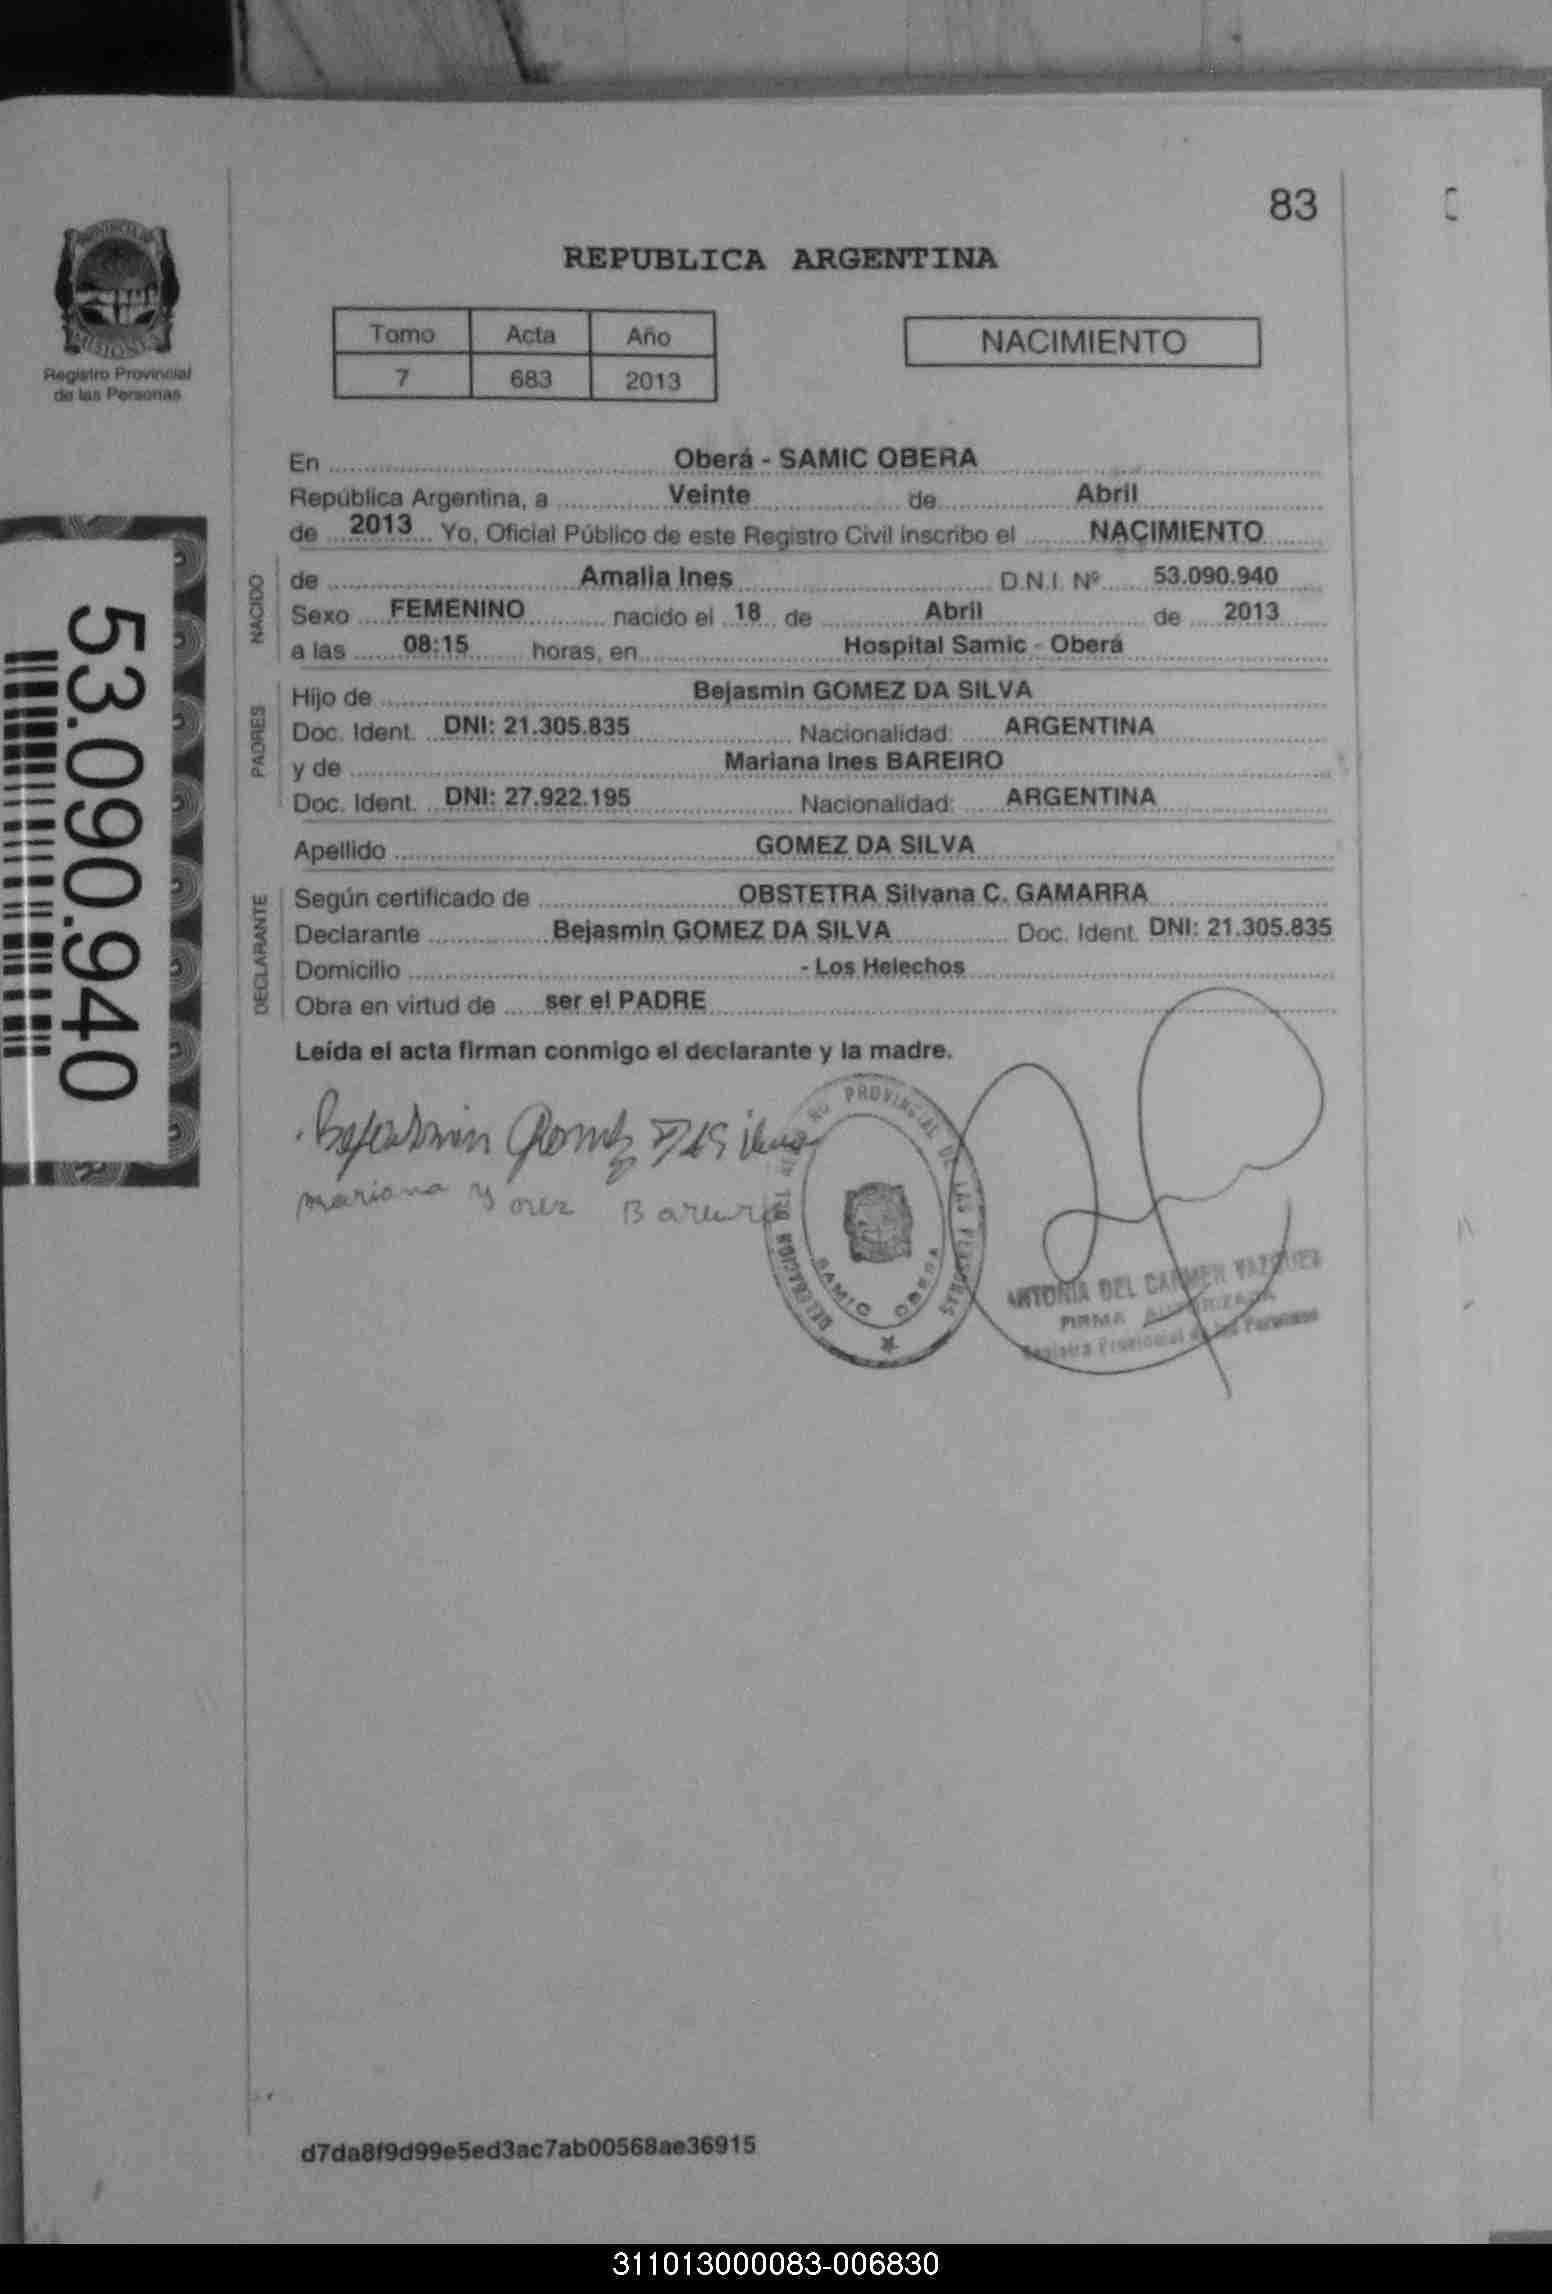 83
PROVINCIA DE
MISIONES
Registro Provincial
de las Personas
REPUBLICA ARGENTINA
Tomo Acta Año
7 683 2013
NACIMIENTO
En Oberá - SAMIC OBERA
República Argentina, a Veinte de Abril
de 2013 Yo, Oficial Público de este Registro Civil inscribo el NACIMIENTO
NACIDO
de Amalia Ines D.N.I. Nº 53.090.940
Sexo FEMENINO nacido el 18 de Abril de 2013
a las 08:15 horas, en Hospital Samic - Oberá
PADRES
Hijo de Bejasmin GOMEZ DA SILVA
Doc. Ident. DNI: 21.305.835 Nacionalidad: ARGENTINA
y de Mariana Ines BAREIRO
Doc. Ident. DNI: 27.922.195 Nacionalidad: ARGENTINA
Apellido GOMEZ DA SILVA
DECLARANTE
Según certificado de OBSTETRA Silvana C. GAMARRA
Declarante Bejasmin GOMEZ DA SILVA Doc. Ident. DNI: 21.305.835
Domicilio - Los Helechos
Obra en virtud de ser el PADRE
Leída el acta firman conmigo el declarante y la madre.
53.090.940
Bejasmin Gomez Da Silva
mariana
DELEGACION DEL REGISTRO PROVINCIAL DE LAS PERSONAS
SAMIC OBERA
ANTONIA DEL CARMEN VAZQUEZ
FIRMA AUTORIZADA
Registro Provincial de las Personas
d7da8f9d99e5ed3ac7ab00568ae36915
311013000083-006830